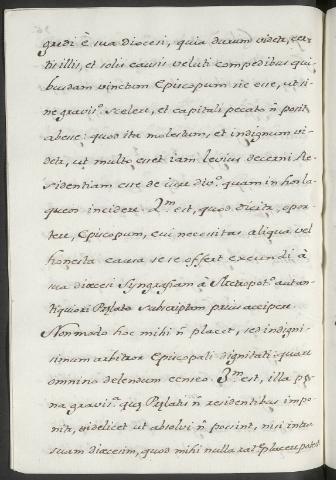 gredi è sua diocesi, quia durum videtr, cer-
tis illis, et solis causis veluti compedibus qui-
busdam vinctum Episcopum sic esse, ut si-
ne graviso. scelere, et capitali pecato ñ possit
abesse: quod ita molestum, et indignum vi-
detr, ut multo esset iam levius decerni Re-
sidentiam esse de iure dio. quam in hos la-
queos incidere. 2m. est, quod dicitr, opor-
tere, Episcopum, cui necessitas aliqua vel
honesta causa se se offert exeundi à
sua diocesi Syngrafam à Metropolo. aut an-
tiquiori Prelato subscriptam prius accipere.
Non modo hoc mihi ñ placet, sed indignis-
simum arbitror Episcopali dignitati: quare
omnino delendum censeo. 3m. est, illa pe-
na graviso. que Prelatis ñ residentibus impo-
nitr, videlicet ut absolvi ñ possint, nisi intra
suam diocesim, quod mihi nulla rate. placere potest